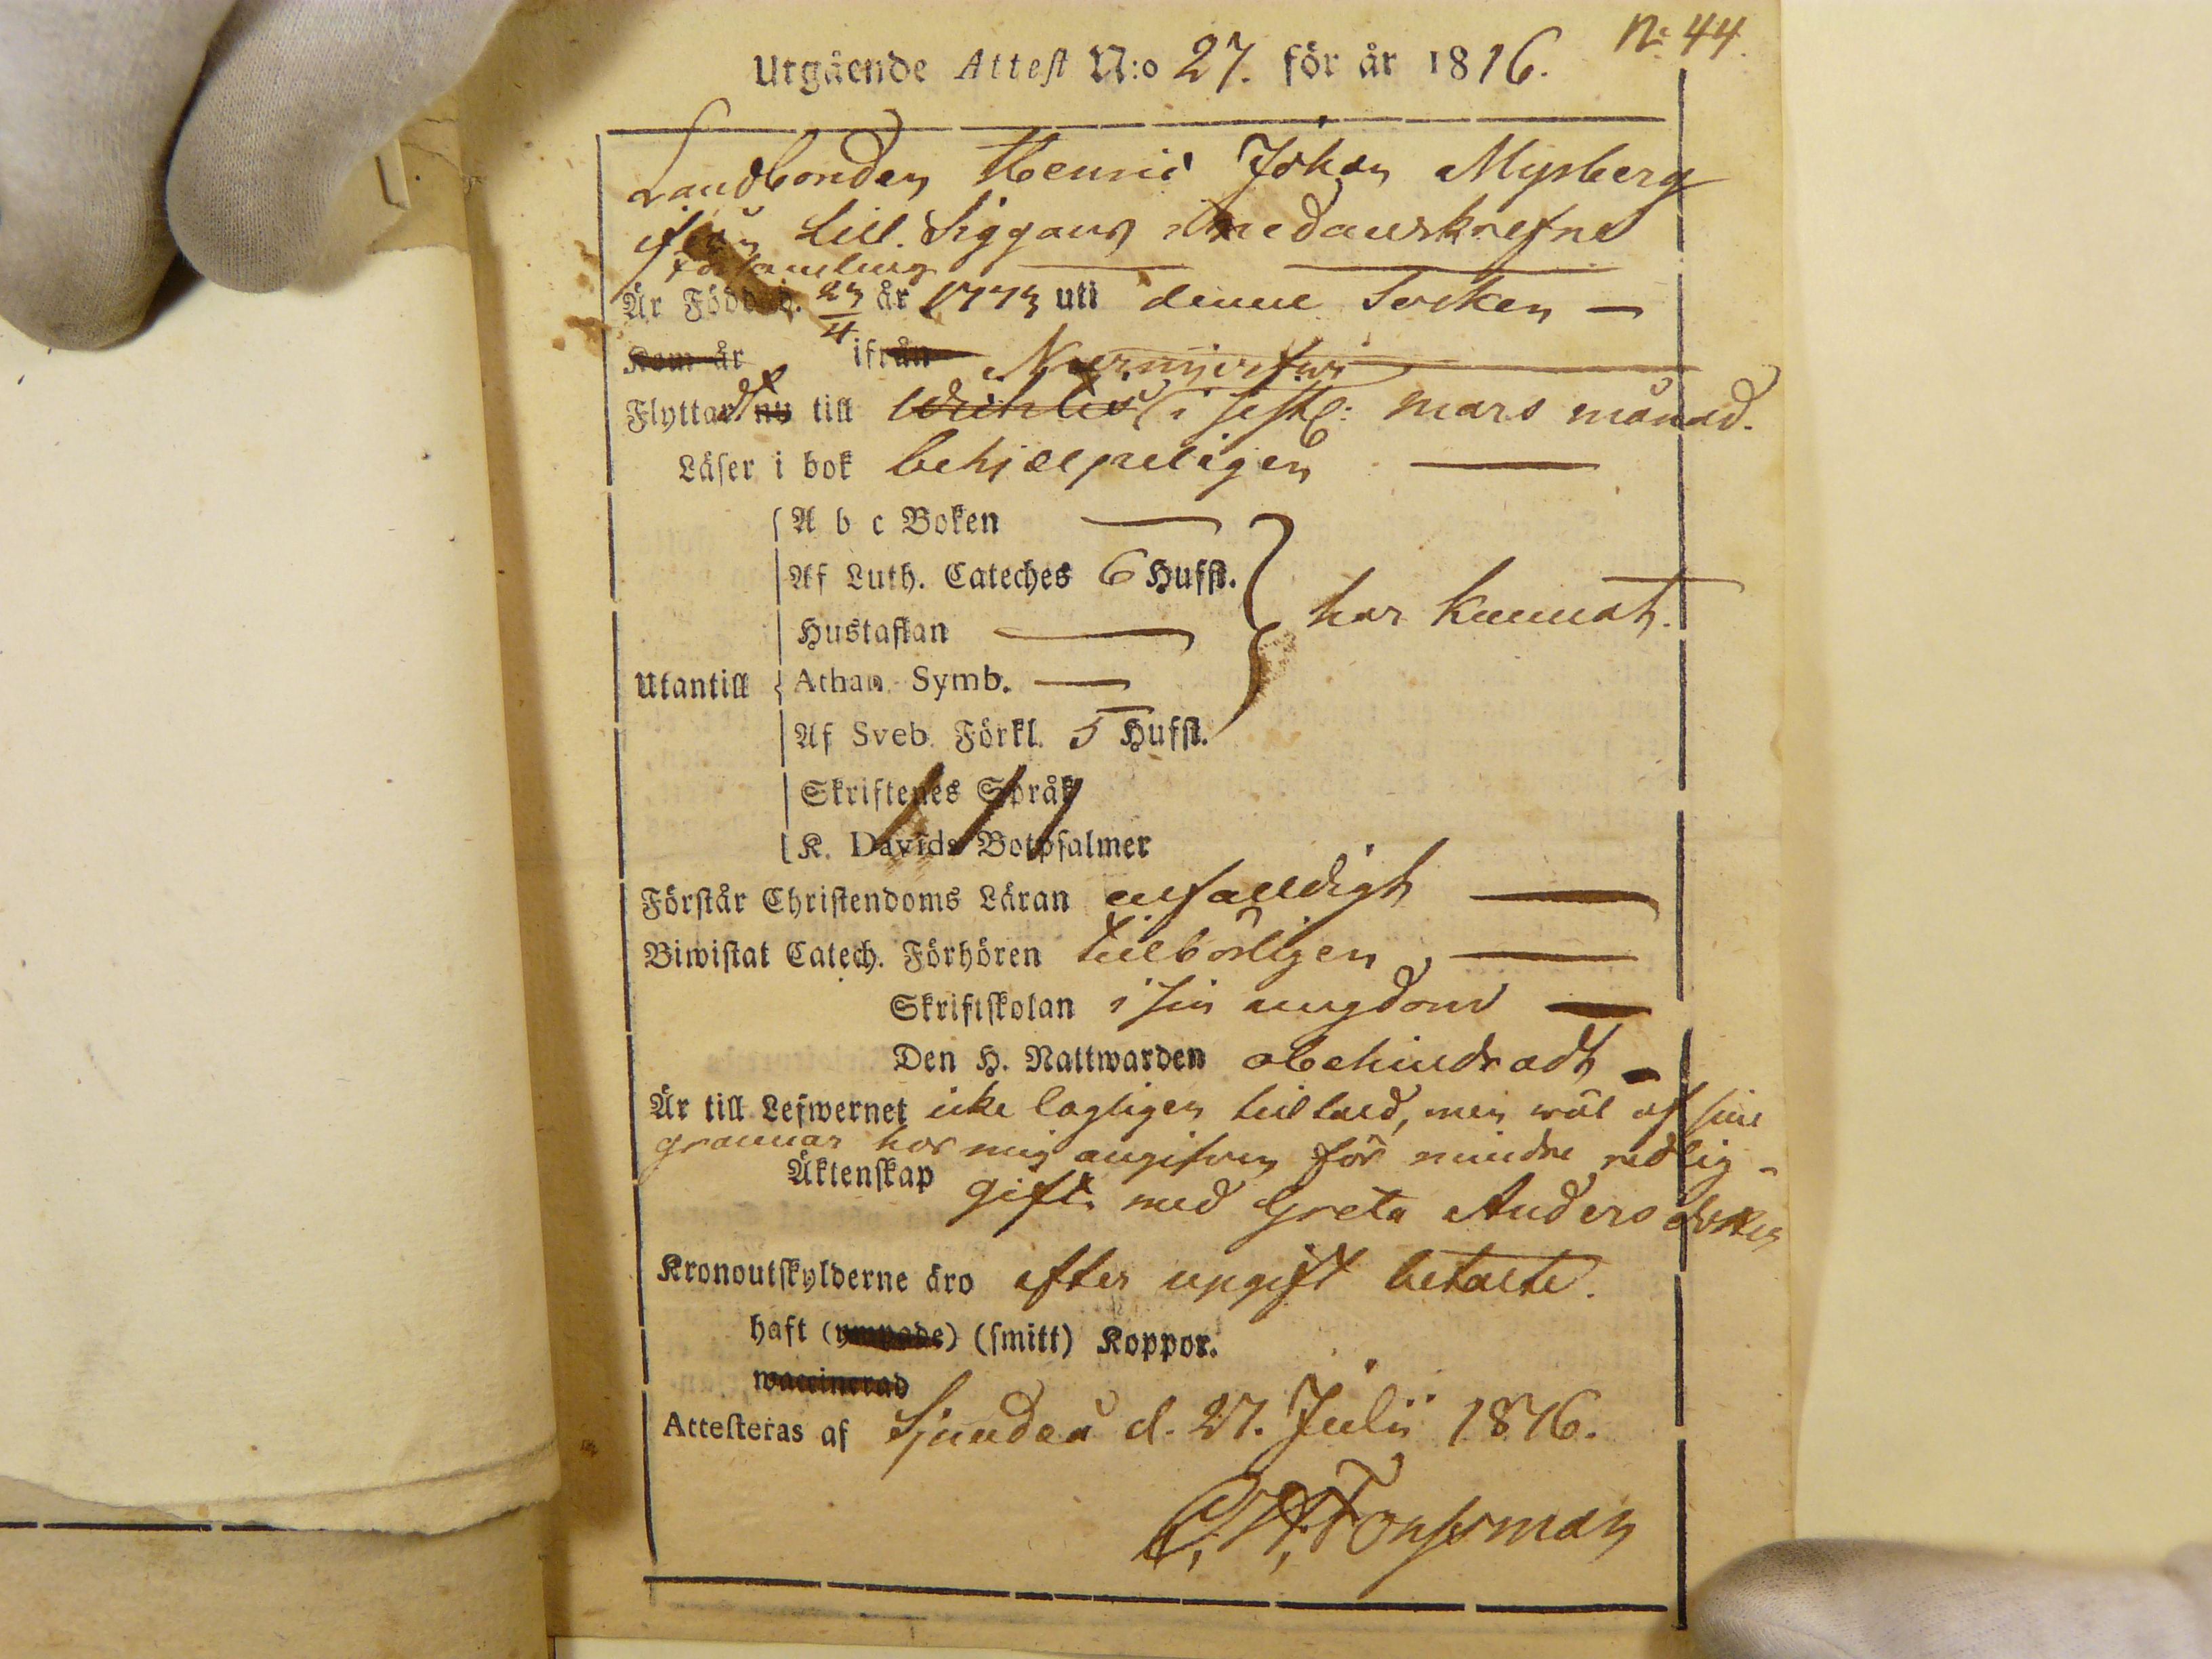 No 44.
Utgående Attest N:o 27. för år 1816.
Landbonden Henric Johan Mysberg
ifrån Lill. Siggans nedanskrefne
församling
Är Född d. 23/4 år 1773 uti denne Socken —
Kom år ifrån Nurmijerfwi
Flyttade nu till Wichtis i sistl: Mars månad.
Läser i bok behjelpeligen
A b c Boken
Af Luth. Cateches 6 Hufst.
har kunnat.
Hustaflan
Utantill Athan. Symb.
Af Sveb. Förkl. 5 Hufst.
Skriftenes Språk
K. Davids Botpsalmer
Förstår Christendoms Läran enfaldigt
Biwistat Catech. Förhören tilbörligen
Skriftskolan i sin ungdom
Den H. Nattwarden obehindradt
Är till Lefwernet icke lagligen tiltald, men wäl af sine
grannar hos mig angifven för mindre redlig -
Äktenskap gift med Greta Andersdotter
Kronoutskylderne äro efter upgift betalte.
haft (ympade) (smitt) Koppor.
waccinerad
Attesteras af Sjundeå d. 27. Julii 1816.
Forssman